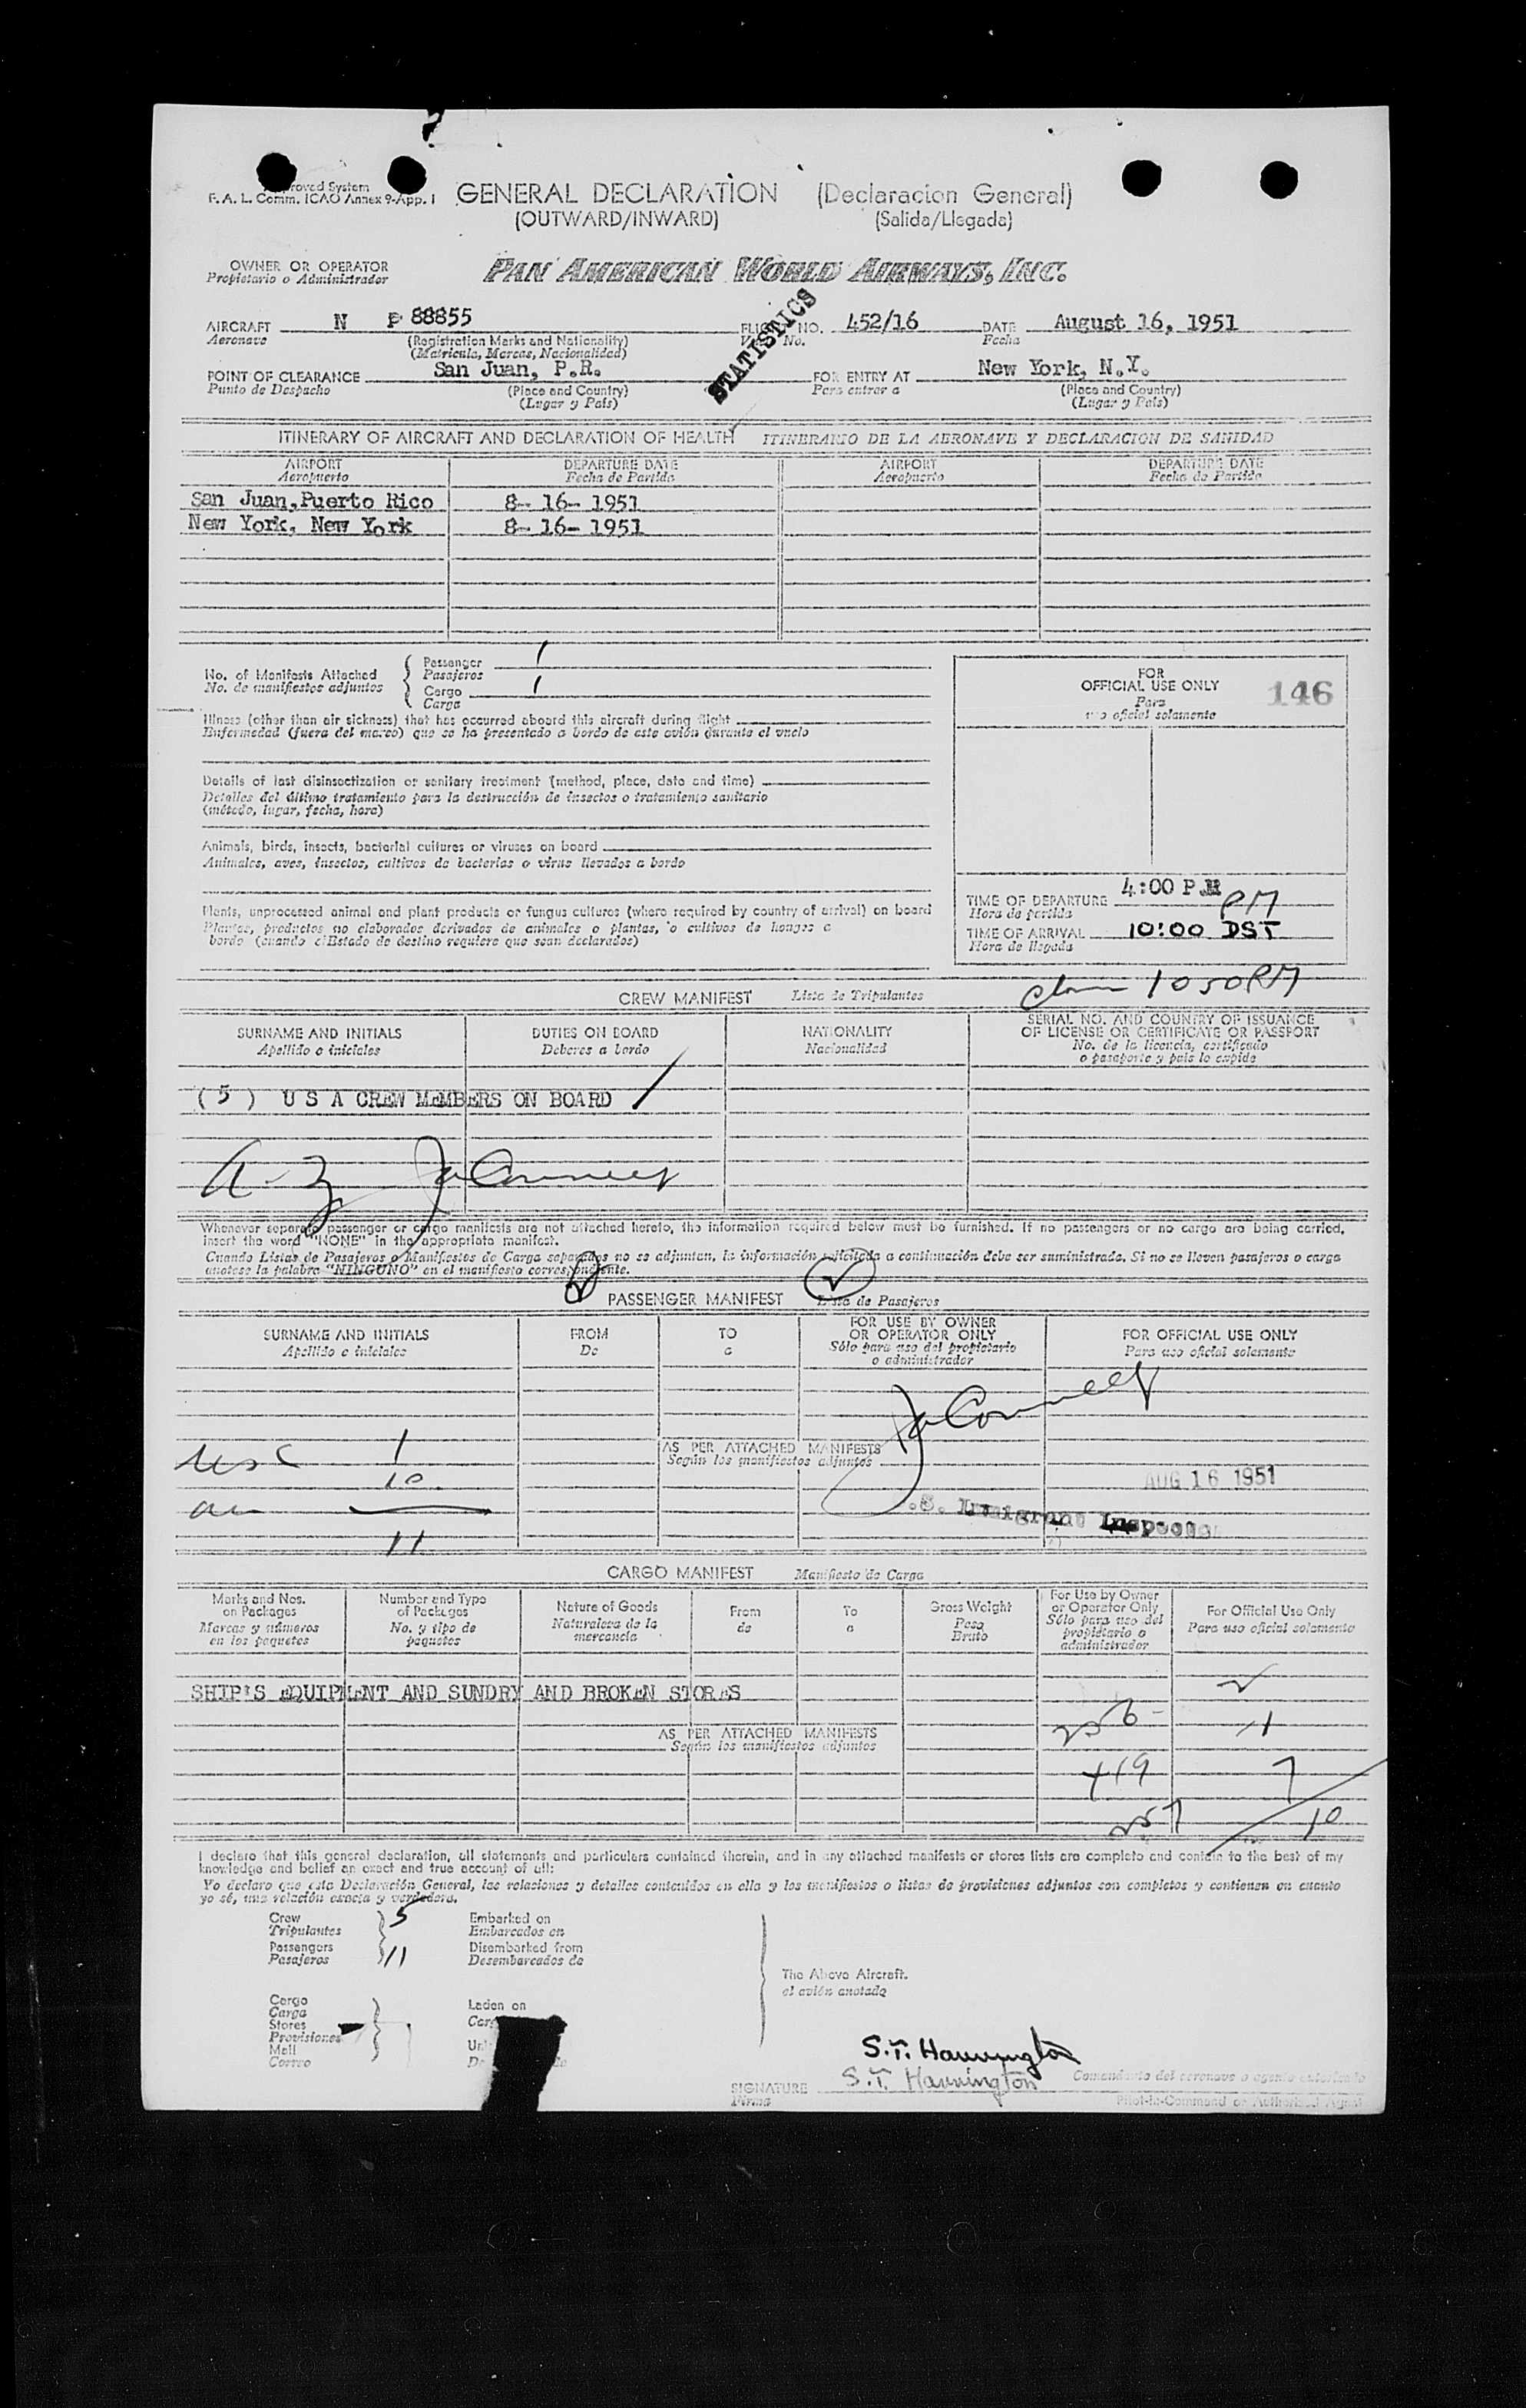 Approved System
F. A. L. Comm. ICAO Annex 9-App. 1
GENERAL DECLARATION (Declaracion General)
(OUTWARD/INWARD) (Salida/Llegada)
OWNER OR OPERATOR
Propietario o Administrador
PAN AMERICAN WORLD AIRWAYS, INC.
STATISTICS
AIRCRAFT N P 88855 FLIGHT NO. 452/16 DATE August 16, 1951
Aeronave (Registration Marks and Nationality) No. Fecha
(Matricula, Marcas, Nacionalidad)
POINT OF CLEARANCE San Juan, P.R. FOR ENTRY AT New York, N.Y.
Punto de Despacho (Place and Country) Para entrar a (Place and Country)
(Lugar y País) (Lugar y País)
ITINERARY OF AIRCRAFT AND DECLARATION OF HEALTH ITINERARIO DE LA AERONAVE Y DECLARACION DE SANIDAD
AIRPORT DEPARTURE DATE AIRPORT DEPARTURE DATE
Aeropuerto Fecha de Partida Aeropuerto Fecha de Partida
San Juan, Puerto Rico 8- 16- 1951
New York, New York 8- 16- 1951
No. of Manifests Attached
No. de manifiestos adjuntos
Passenger 1
Pasajeros
Cargo 1
Carga
FOR
OFFICIAL USE ONLY 146
Para
uso oficial solamente
Illness (other than air sickness) that has occurred aboard this aircraft during flight
Enfermedad (fuera del mareo) que se ha presentado a bordo de este avión durante el vuelo
Details of last disinsectization or sanitary treatment (method, place, date and time)
Detalles del último tratamiento para la destrucción de insectos o tratamiento sanitario
(método, lugar, fecha, hora)
Animals, birds, insects, bacterial cultures or viruses on board
Animales, aves, insectos, cultivos de bacterias o virus llevados a bordo
Plants, unprocessed animal and plant products or fungus cultures (where required by country of arrival) on board
Plantas, productos no elaborados derivados de animales o plantas, o cultivos de hongos a
bordo (cuando el Estado de destino requiere que sean declarados)
TIME OF DEPARTURE 4:00 P.M
Hora de partida PM
TIME OF ARRIVAL 10:00 DST
Hora de llegada
1050PM
CREW MANIFEST Lista de Tripulantes
SURNAME AND INITIALS DUTIES ON BOARD NATIONALITY SERIAL NO. AND COUNTRY OF ISSUANCE
OF LICENSE OR CERTIFICATE OR PASSPORT
Apellido e iniciales Deberes a bordo Nacionalidad No. de la licencia, certificado
o pasaporte y país lo expide
( 5 ) U S A CREW MEMBERS ON BOARD
Whenever separate passenger or cargo manifests are not attached hereto, the information required below must be furnished. If no passengers or no cargo are being carried,
insert the word "NONE" in the appropriate manifest.
Cuando Listas de Pasajeros o Manifiestos de Carga separados no se adjuntan, la información solicitada a continuación debe ser suministrada. Si no se lleven pasajeros o carga
anotese la palabra "NINGUNO" en el manifiesto correspondiente.
PASSENGER MANIFEST Lista de Pasajeros
SURNAME AND INITIALS FROM TO FOR USE BY OWNER
OR OPERATOR ONLY FOR OFFICIAL USE ONLY
Apellido e iniciales De a Sólo para uso del propietario
o administrador Para uso oficial solamente
1
AS PER ATTACHED MANIFESTS
Según los manifiestos adjuntos
10
AUG 16 1951
.S. Immigrant Inspector
11
CARGO MANIFEST Manifiesto de Carga
Marks and Nos.
on Packages
Marcas y números
en los paquetes
Number and Type
of Packages
No. y tipo de
paquetes
Nature of Goods
Naturaleza de la
mercancía
From
de
To
a
Gross Weight
Peso
Bruto
For Use by Owner
or Operator Only
Sólo para uso del
propietario o
administrador
For Official Use Only
Para uso oficial solamente
SHIP'S EQUIPMENT AND SUNDRY AND BROKEN STORES
256 11
AS PER ATTACHED MANIFESTS
Según los manifiestos adjuntos
419 7
257 10
I declare that this general declaration, all statements and particulars contained therein, and in any attached manifests or stores lists are complete and contain to the best of my
knowledge and belief an exact and true account of all:
Yo declaro que esta Declaración General, las relaciones y detalles contenidos en ella y los manifiestos o listas de provisiones adjuntos son completos y contienen en cuanto
yo sé, una relación exacta y verdadera.
Crew 5 Embarked on
Tripulantes Embarcados en
Passengers 11 Disembarked from
Pasajeros Desembarcados de
The Above Aircraft.
el avión anotado
Cargo
Carga
Stores
Provisiones
Mail
Correo
Laden on
S.T. Hannington
S.T. Hannington
SIGNATURE
Firma
Comandante del aeronave o agente autorizado
Pilot-in-Command or Authorized Agent